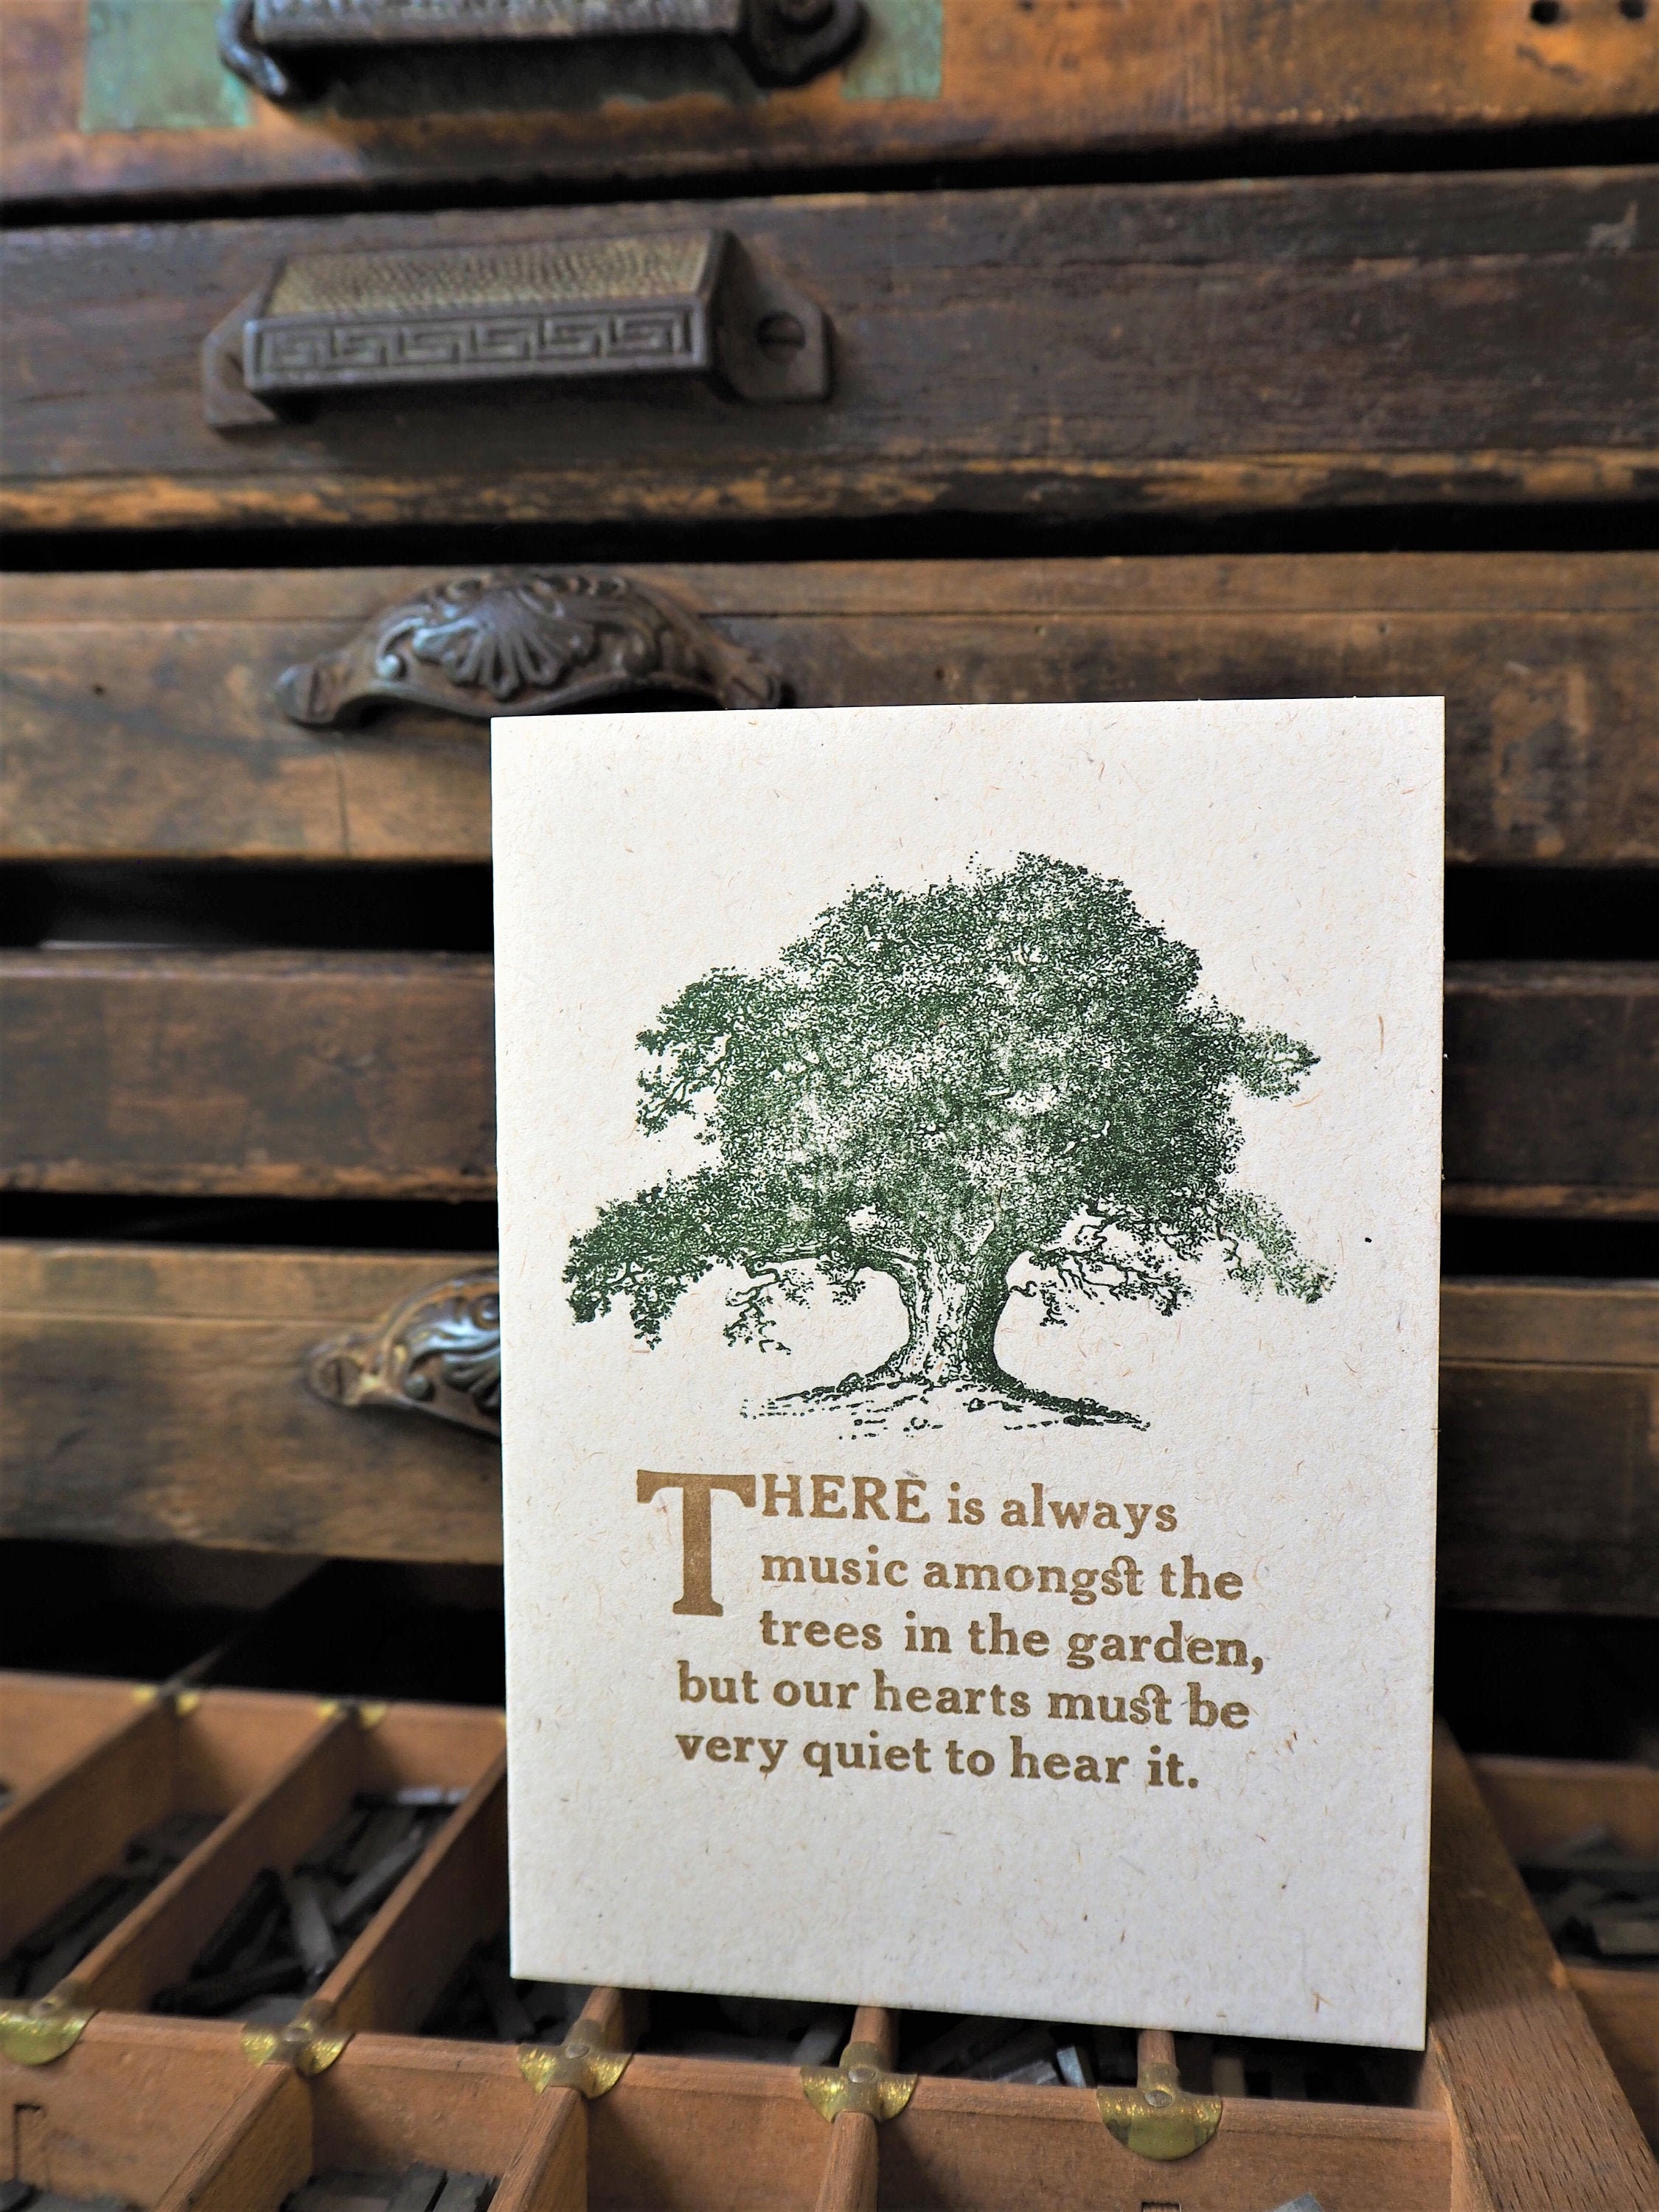 THERE is always
music amongst the
trees in the garden,
but our hearts must be
very quiet to hear it.